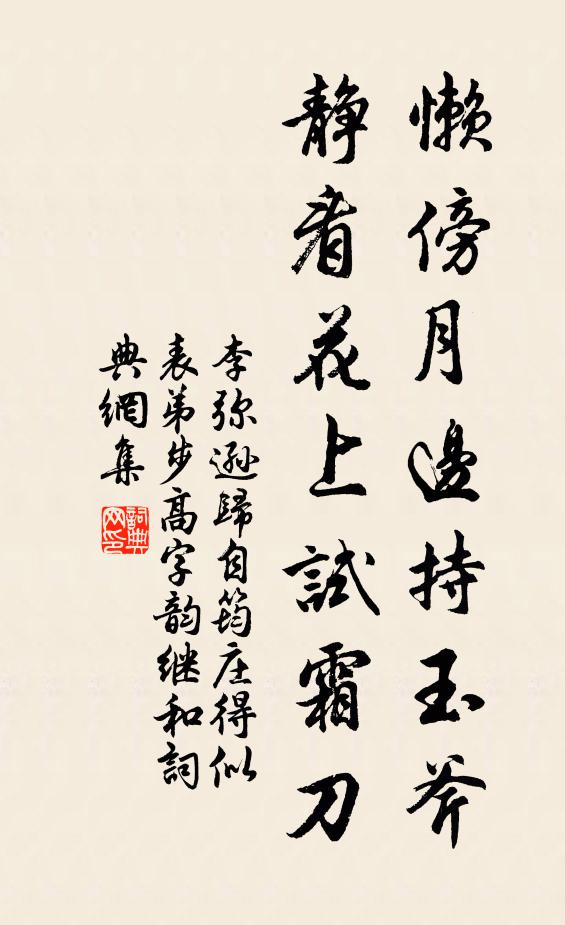 懒傍月邊持玉斧
静看花上試霜刀
李弥遜歸自筠庄得似
表弟步高字韵继和詞
典網集
詞典网印